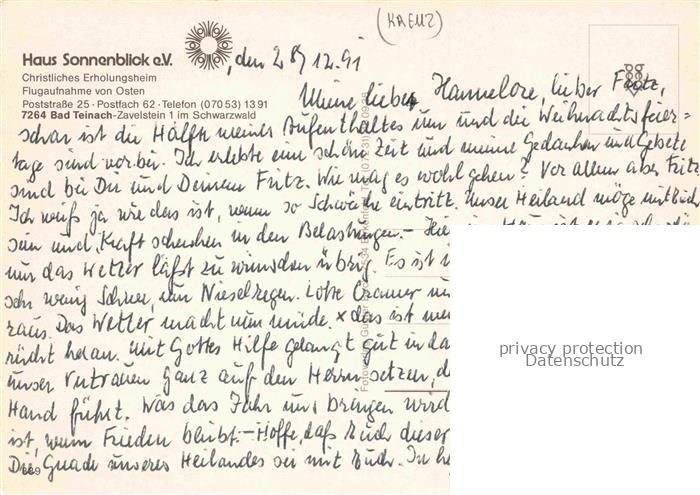 (KREUZ)
Haus Sonnenblick e.V.
, den 28/12.91
Christliches Erholungsheim
Flugaufnahme von Osten
Poststraße 25 · Postfach 62 · Telefon (07053) 1391
7264 Bad Teinach-Zavelstein 1 im Schwarzwald
Meine liebe Hannelore, lieber Fritz,
schon ist die Hälfte meines Aufenthaltes um und die Weihnachtsfeier=
tage sind vorbei. Ich erlebte eine schöne Zeit und meine Gedanken und Gebete
sind bei Dir und Deinem Fritz. Wie mag es wohl gehen? Vor allem aber Fritz
Ich weiß ja wie das ist, wenn so Schwäche eintritt. Unser Heiland möge mit Euch
sein und Kraft schenken in den Belastungen. – Hier im Haus ist es ja schön
nur das Wetter läßt zu wünschen übrig. Es ist
sehr wenig Schnee, nur Nieselregen. Lotte Cramer
raus. Das Wetter macht nun müde. x das ist
rückt heran. Mit Gottes Hilfe gelangt gut in das
unser Vertrauen ganz auf den Herrn setzen,
Hand führt. Was das Jahr uns bringen wird
ist, wenn Frieden bleibt. – Hoffe, daß Euch dieser
Die Gnade unseres Heilandes sei mit Euch. In
689
privacy protection
Datenschutz